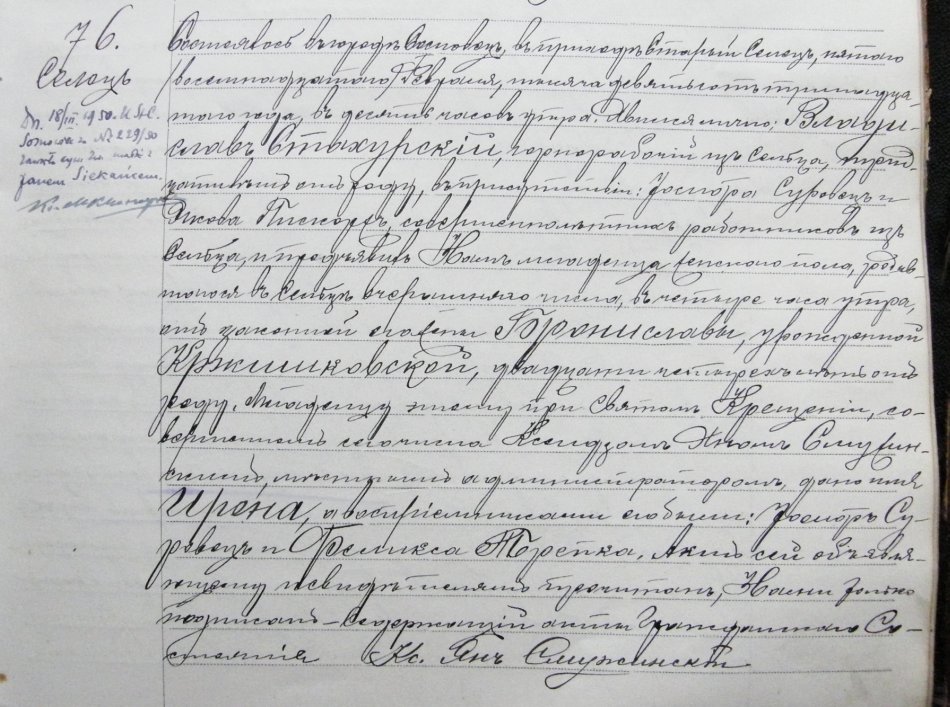 76.
Селецъ
Dn. 18/III. 1950. U.S.C.
Sosnowiec Nr 229/50
zawarł związek małż. z
Janem Siekańcem.
Состоялось въ городѣ Сосновецъ, въ приходѣ Старый Селецъ, пятого
/восемнадцатого/ Февраля, тысяча девятьсотъ тринадца-
таго года, въ десять часовъ утра. Явился лично: Влади-
славъ Стахурскій, горнорабочій изъ Сельца, тридцати
лѣтъ отъ роду, въ присутствіи: Іосифа Суровецъ и
Якова Пискорекъ, совершеннолѣтнихъ работниковъ изъ
Сельца, и предъявилъ Намъ младенца женскаго пола, родив-
шагося въ Сельцѣ вчерашняго числа, въ четыре часа утра,
отъ законной его жены Брониславы, урожденной
Кржишковской, двадцати четырехъ лѣтъ отъ
роду. Младенцу этому при Святомъ Крещеніи, со-
вершенномъ сего числа Ксендзомъ Яномъ Смужин-
скимъ, мѣстнымъ администраторомъ, дано имя
Ирена, а воспріемниками его были: Іосифъ Су-
ровецъ и Феликса Торбка. Актъ сей объявля-
ющему и свидѣтелямъ прочитанъ, Нами только
подписанъ – Содержащій акты Гражданскаго Со-
стоянія Кс. Янъ Смужинскій